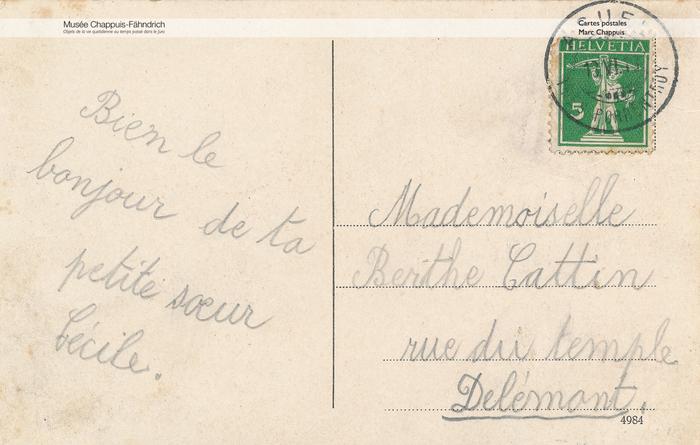 Musée Chappuis-Fähndrich
Objets de la vie quotidienne au temps passé dans le Jura
Cartes postales
Marc Chappuis
HELVETIA
5
Bien le
bonjour de ta
petite sœur
Cécile.
Mademoiselle
Berthe Cattin
rue du temple
Delémont.
4984